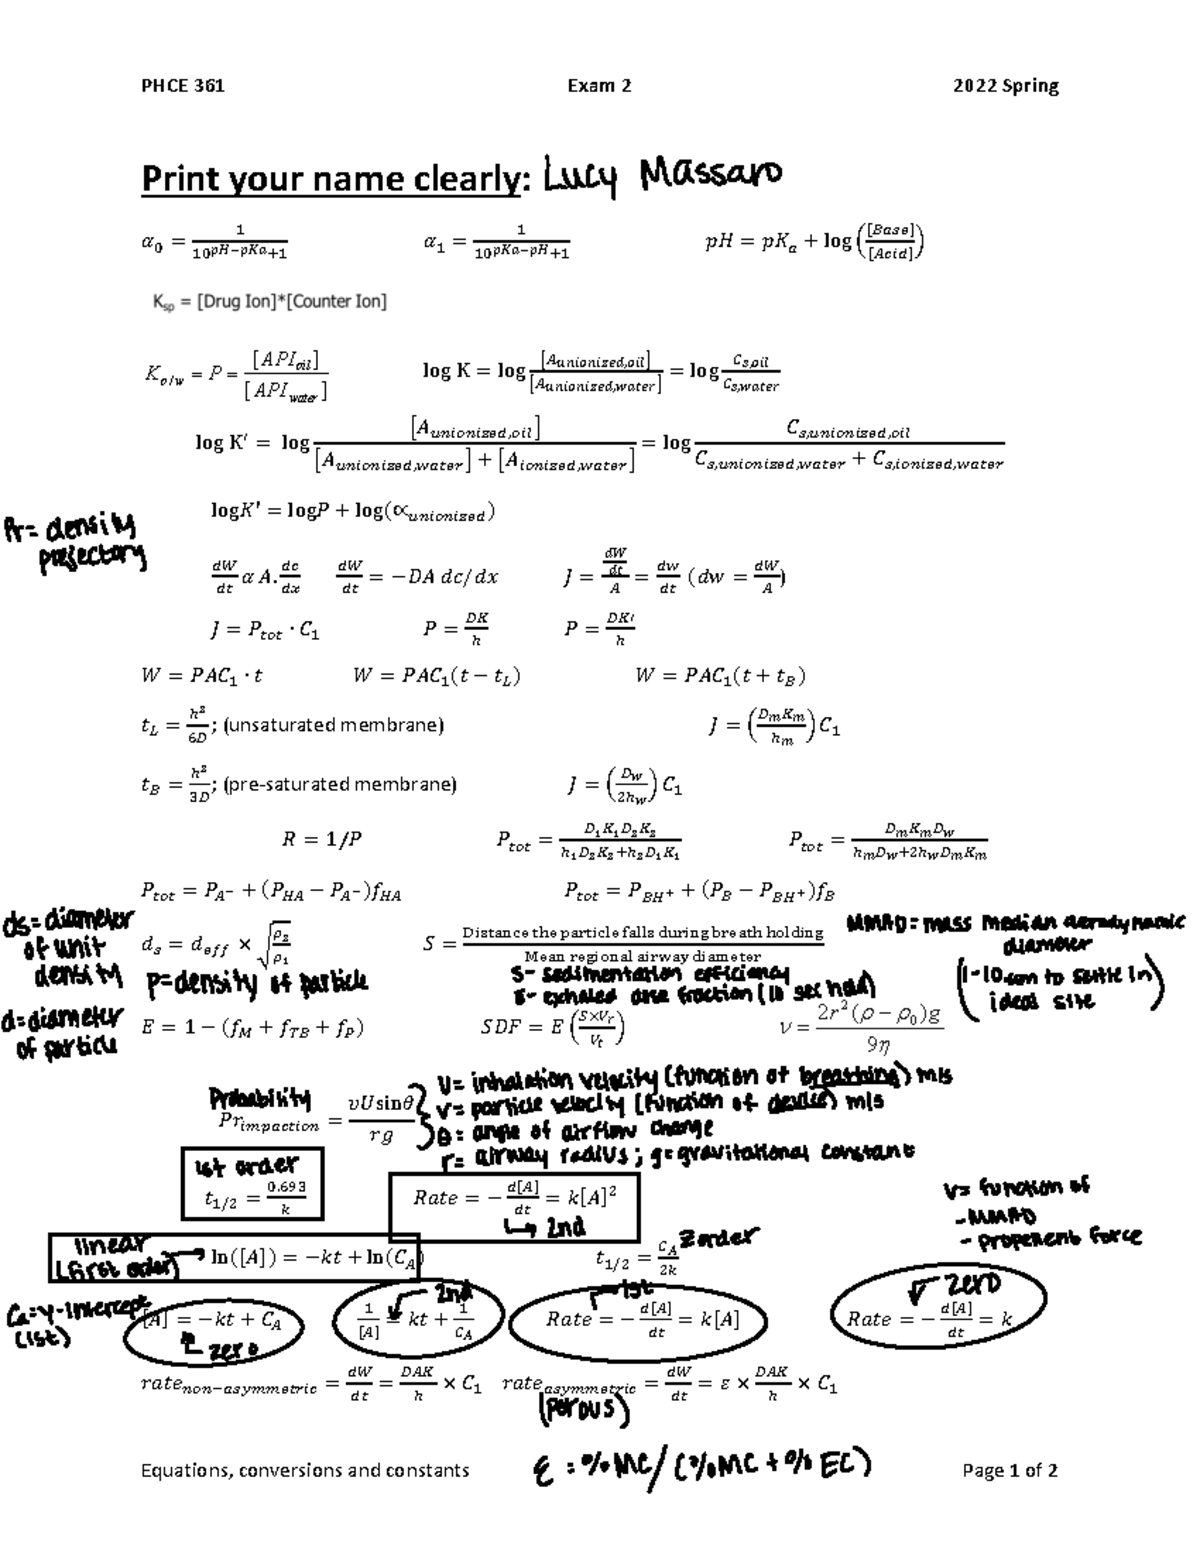 PHCE 361 Exam 2 2022 Spring
Print your name clearly: Lucy Massaro
α₀ = 1/(10^(pH−pKa)+1) α₁ = 1/(10^(pKa−pH)+1) pH = pKₐ + log([Base]/[Acid])
Kₛₚ = [Drug Ion]*[Counter Ion]
K_o/w = P = [API_oil]/[API_water] log K = log [A_unionized,oil]/[A_unionized,water] = log C_s,oil/C_s,water
log K′ = log [A_unionized,oil]/([A_unionized,water] + [A_ionized,water]) = log C_s,unionized,oil/(C_s,unionized,water + C_s,ionized,water)
logK′ = logP + log(∝_unionized)
Pr= density
projectory
dW/dt α A.dc/dx dW/dt = −DA dc/dx J = (dW/dt)/A = dw/dt (dw = dW/A)
J = P_tot · C₁ P = DK/h P = DK′/h
W = PAC₁ · t W = PAC₁(t − t_L) W = PAC₁(t + t_B)
t_L = h²/6D; (unsaturated membrane) J = (D_mK_m/h_m)C₁
t_B = h²/3D; (pre-saturated membrane) J = (D_w/2h_w)C₁
R = 1/P P_tot = D₁K₁D₂K₂/(h₁D₂K₂+h₂D₁K₁) P_tot = D_mK_mD_w/(h_mD_w+2h_wD_mK_m)
P_tot = P_A⁻ + (P_HA − P_A⁻)f_HA P_tot = P_BH⁺ + (P_B − P_BH⁺)f_B
ds=diameter
of unit
density
d_s = d_eff × √(ρ₂/ρ₁) S = Distance the particle falls during breath holding/Mean regional airway diameter
MMAD= mass median aerodynamic
diameter
(1-10um to settle in
ideal site)
P=density of particle
S- sedimentation efficiency
E- exhaled dose fraction (10 sec hold)
d=diameter
of particle
E = 1 − (f_M + f_TB + f_P) SDF = E(S×V_r/V_t) ν = 2r²(ρ − ρ₀)g/9η
Probability
Pr_impaction = vU sinθ/rg
U= inhalation velocity (function of breathing) m/s
V= particle velocity (function of device) m/s
θ= angle of airflow change
r= airway radius; g=gravitational constant
1st order
t₁/₂ = 0.693/k Rate = −d[A]/dt = k[A]²
2nd
V= function of
-MMAD
- propenent force
linear
(first order) ln([A]) = −kt + ln(C_A) t₁/₂ = C_A/2k Zorder
Ca=y-intercept
(1st)
[A] = −kt + C_A 1/[A] = kt + 1/C_A Rate = −d[A]/dt = k[A] Rate = −d[A]/dt = k
zero 2nd 1st zero
rate_non−asymmetric = dW/dt = DAK/h × C₁ rate_asymmetric = dW/dt = ε × DAK/h × C₁
(porous)
ε = %MC/(%MC + % EC)
Equations, conversions and constants Page 1 of 2